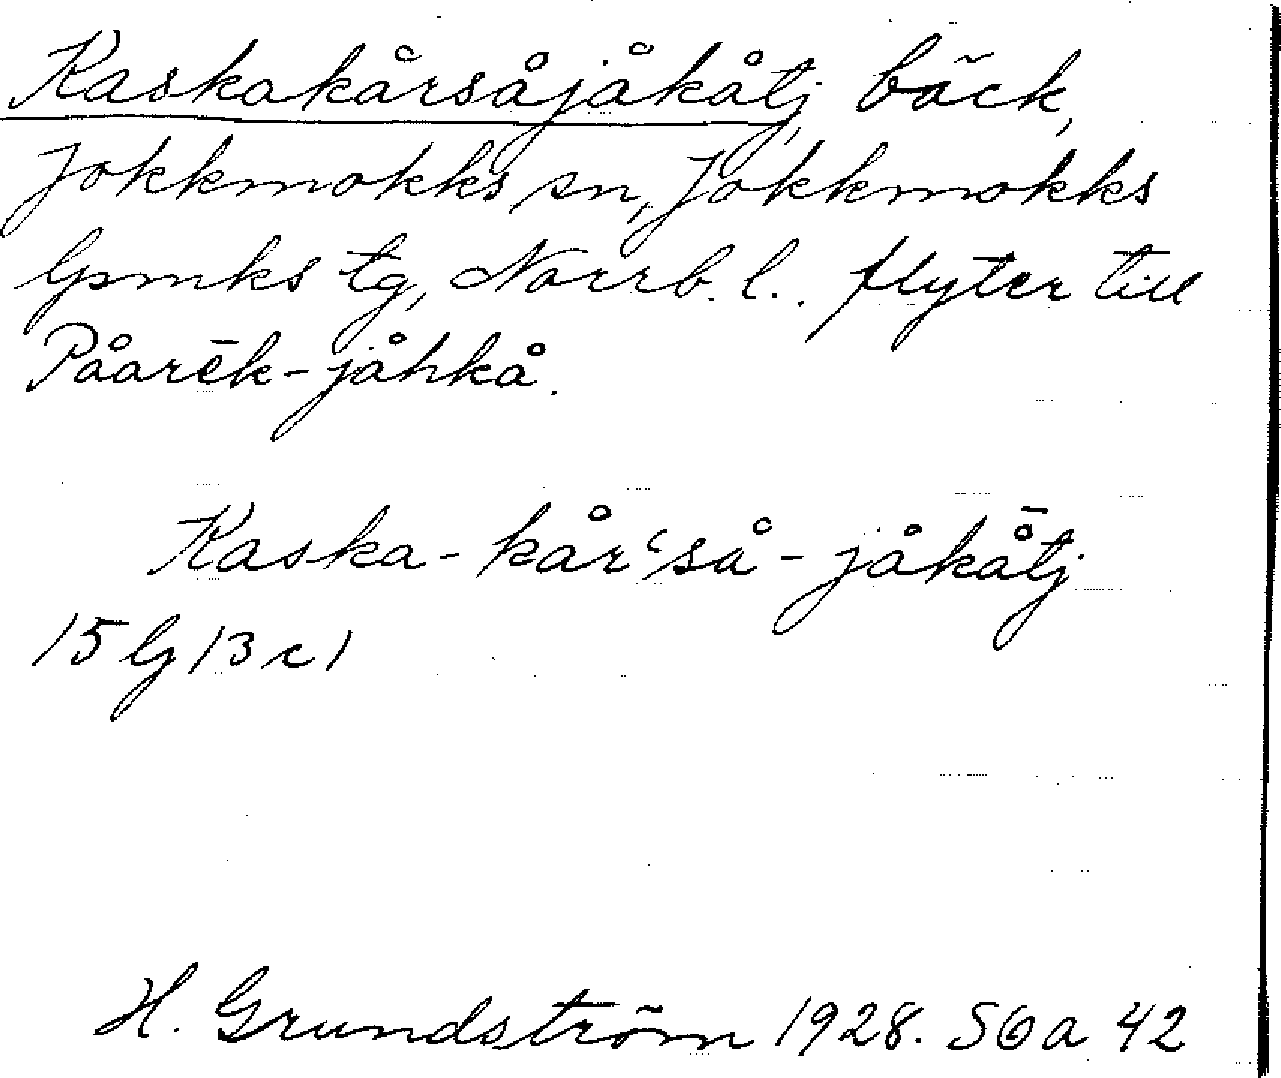 Kaskakårsåjåkåtj, bäck,
Jokkmokks sn, Jokkmokks
lpmks tg, Norrb. l.. flyter till
Påarēk-jåhkå.
Kaska-kårʿså-jåkå̄tj
15 G 13 c 1
H. Grundström 1928. SOa 42